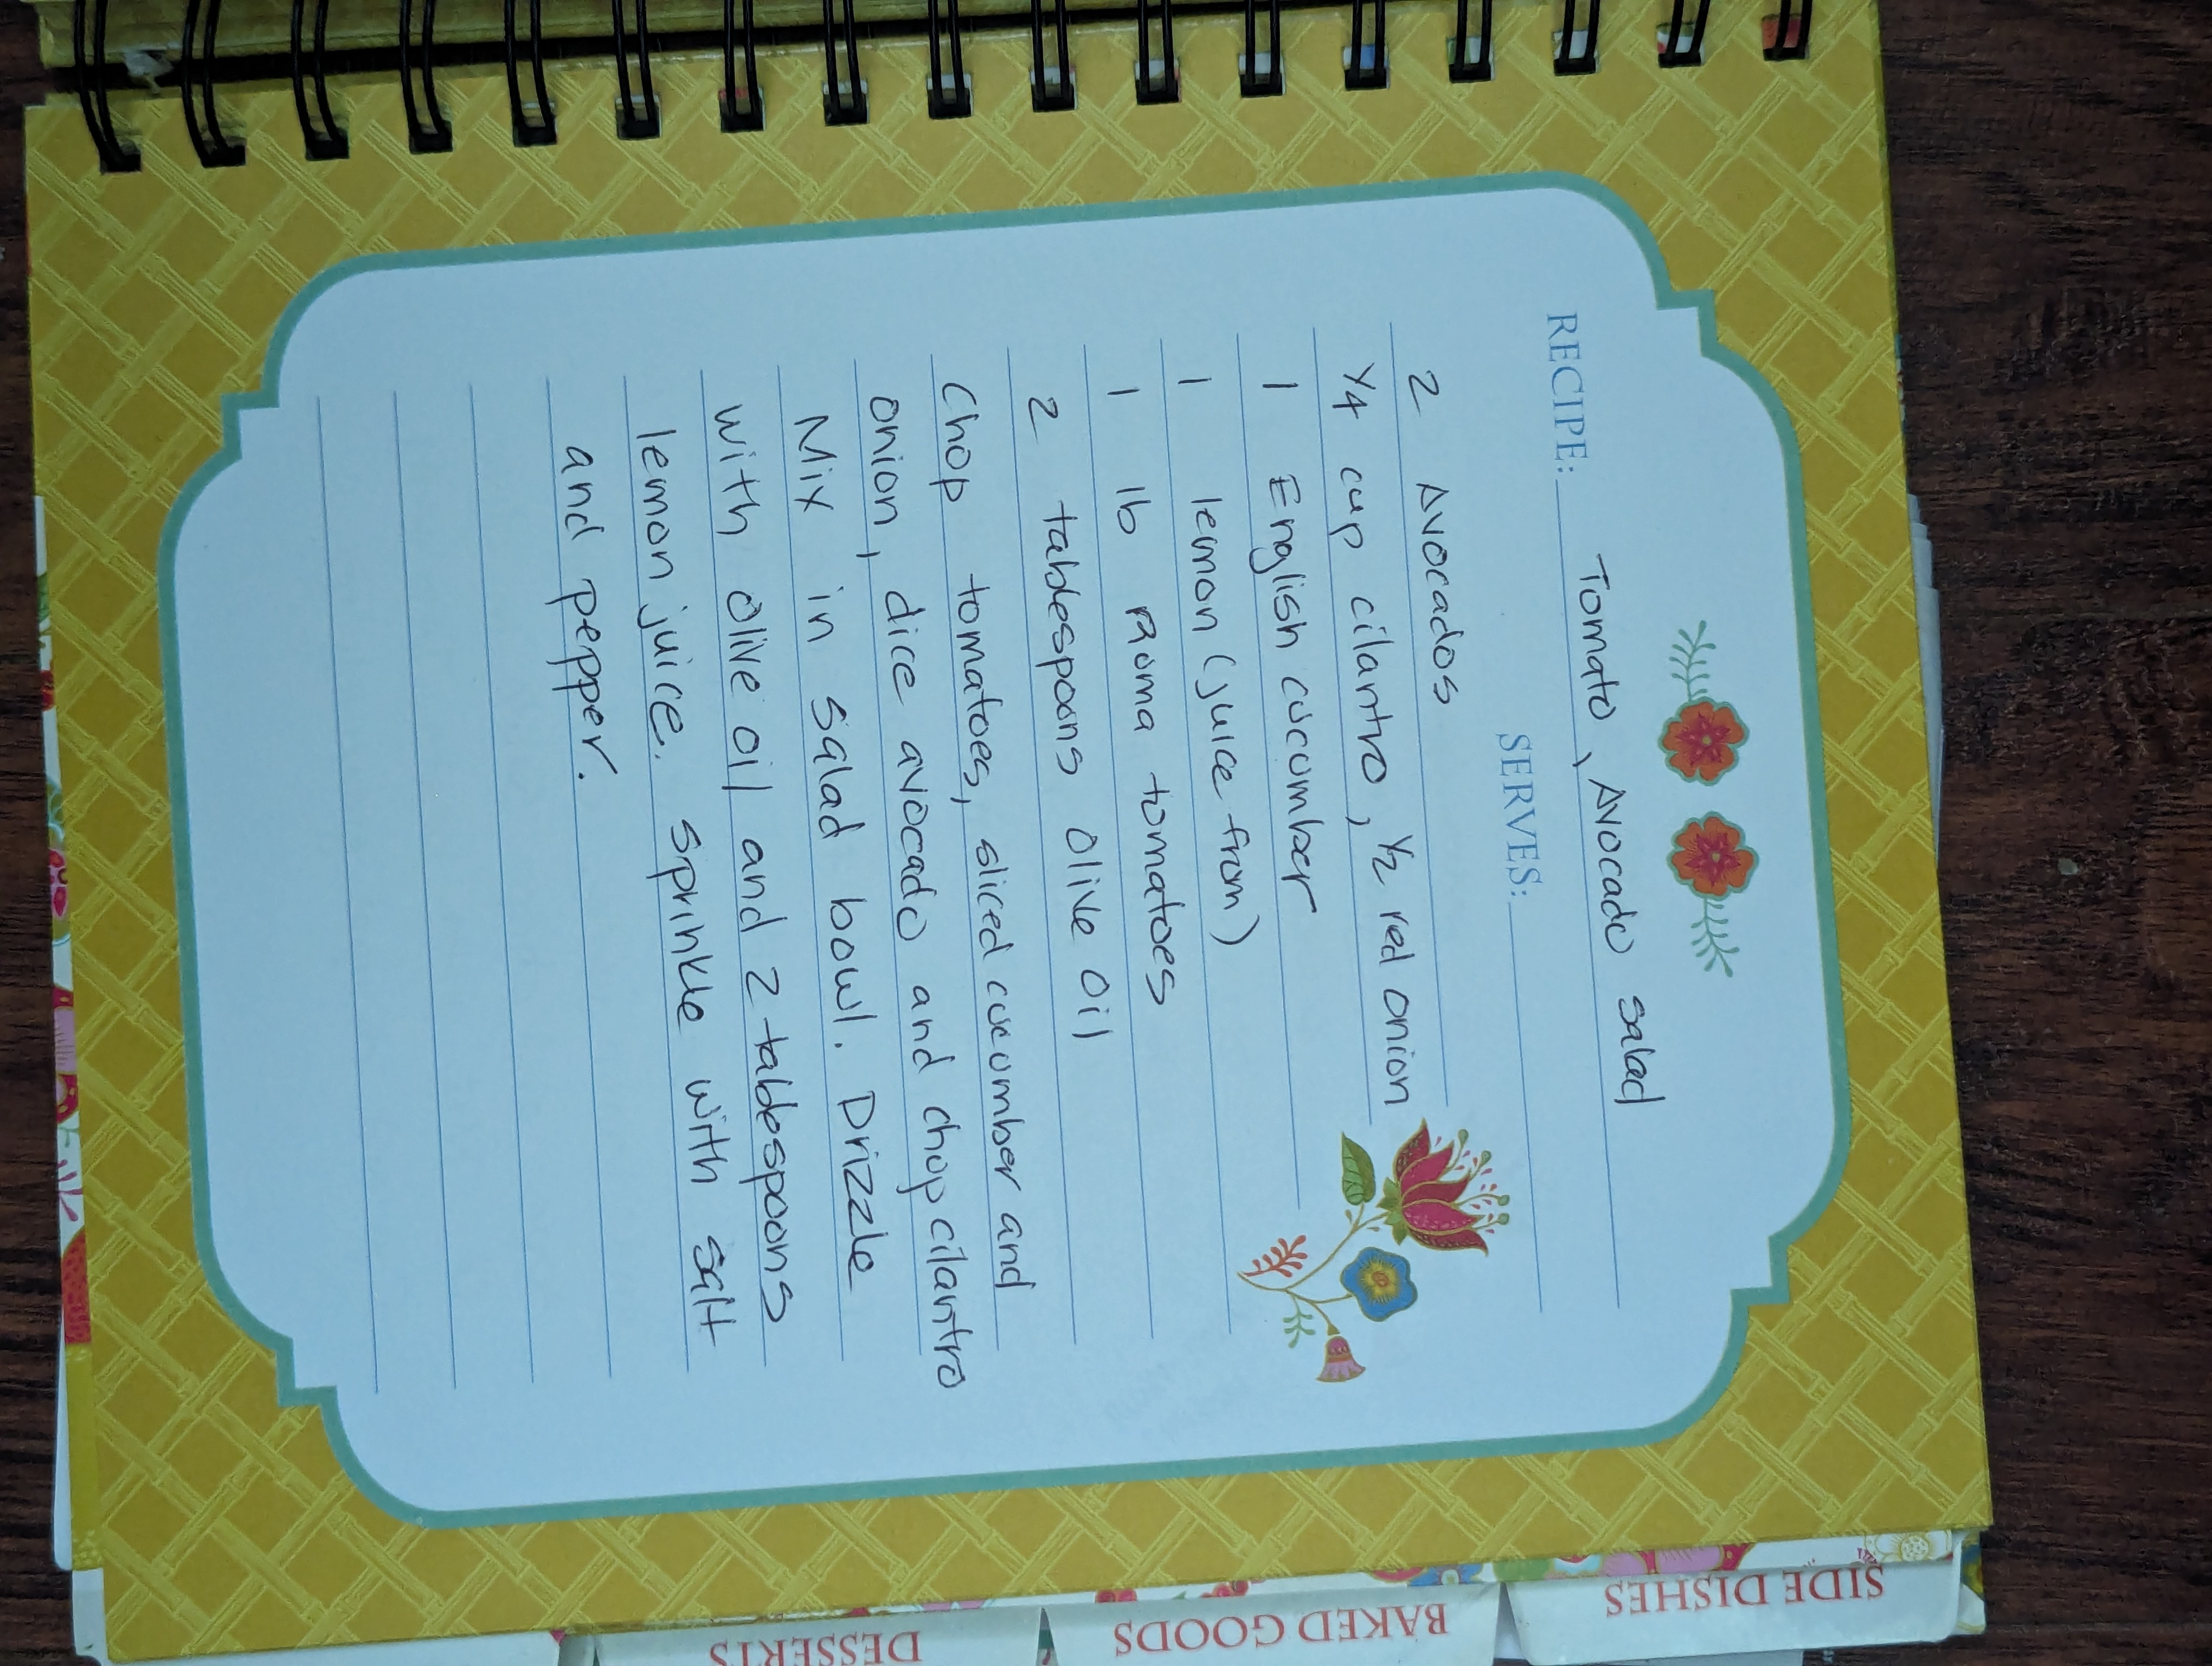 RECIPE: Tomato, Avocado salad
SERVES:
2 Avocados
1/4 cup cilantro, 1/2 red onion
1 English cucumber
1 lemon (juice from)
1 lb Roma tomatoes
2 tablespoons olive oil
Chop tomatoes, sliced cucumber and
onion, dice avocado and chop cilantro
Mix in salad bowl. Drizzle
with olive oil and 2 tablespoons
lemon juice. Sprinkle with salt
and pepper.
SIDE DISHES
BAKED GOODS
DESSERTS